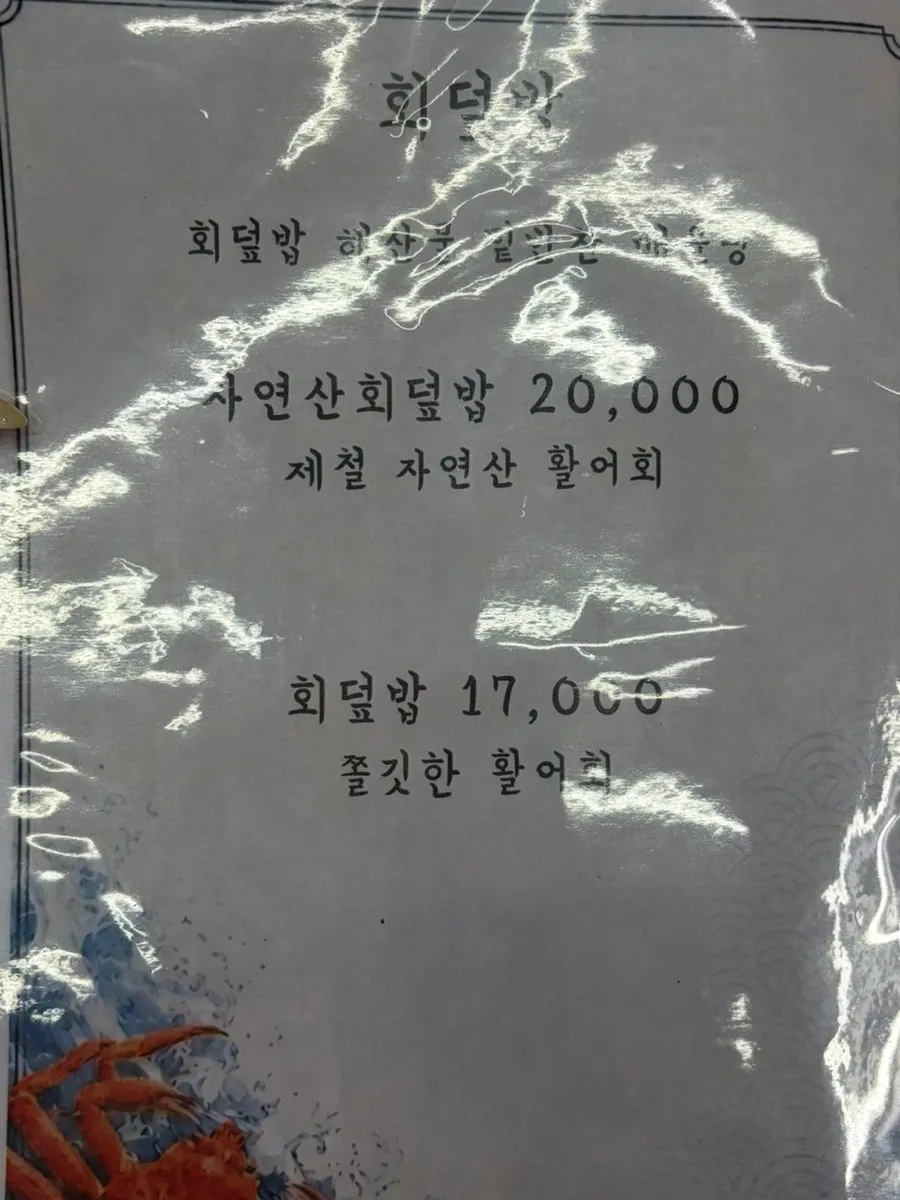 회덮밥
회덮밥 해산물 밑반찬 매운탕
자연산회덮밥 20,000
제철 자연산 활어회
회덮밥 17,000
쫄깃한 활어회